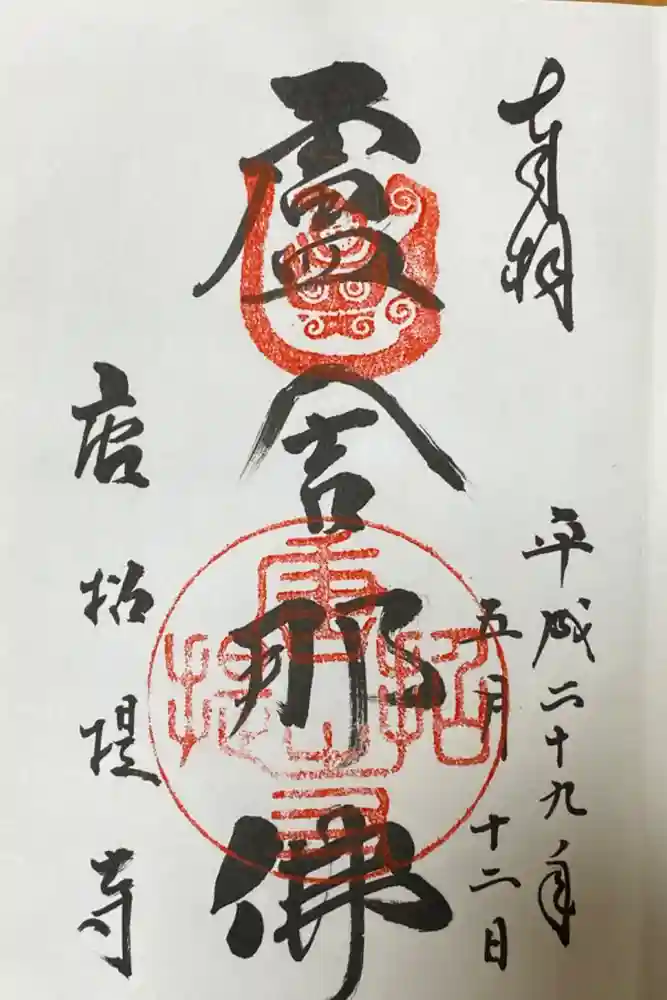 奉拝
平成二十九年
五月十二日
盧舎那佛
唐招提寺
唐招提寺